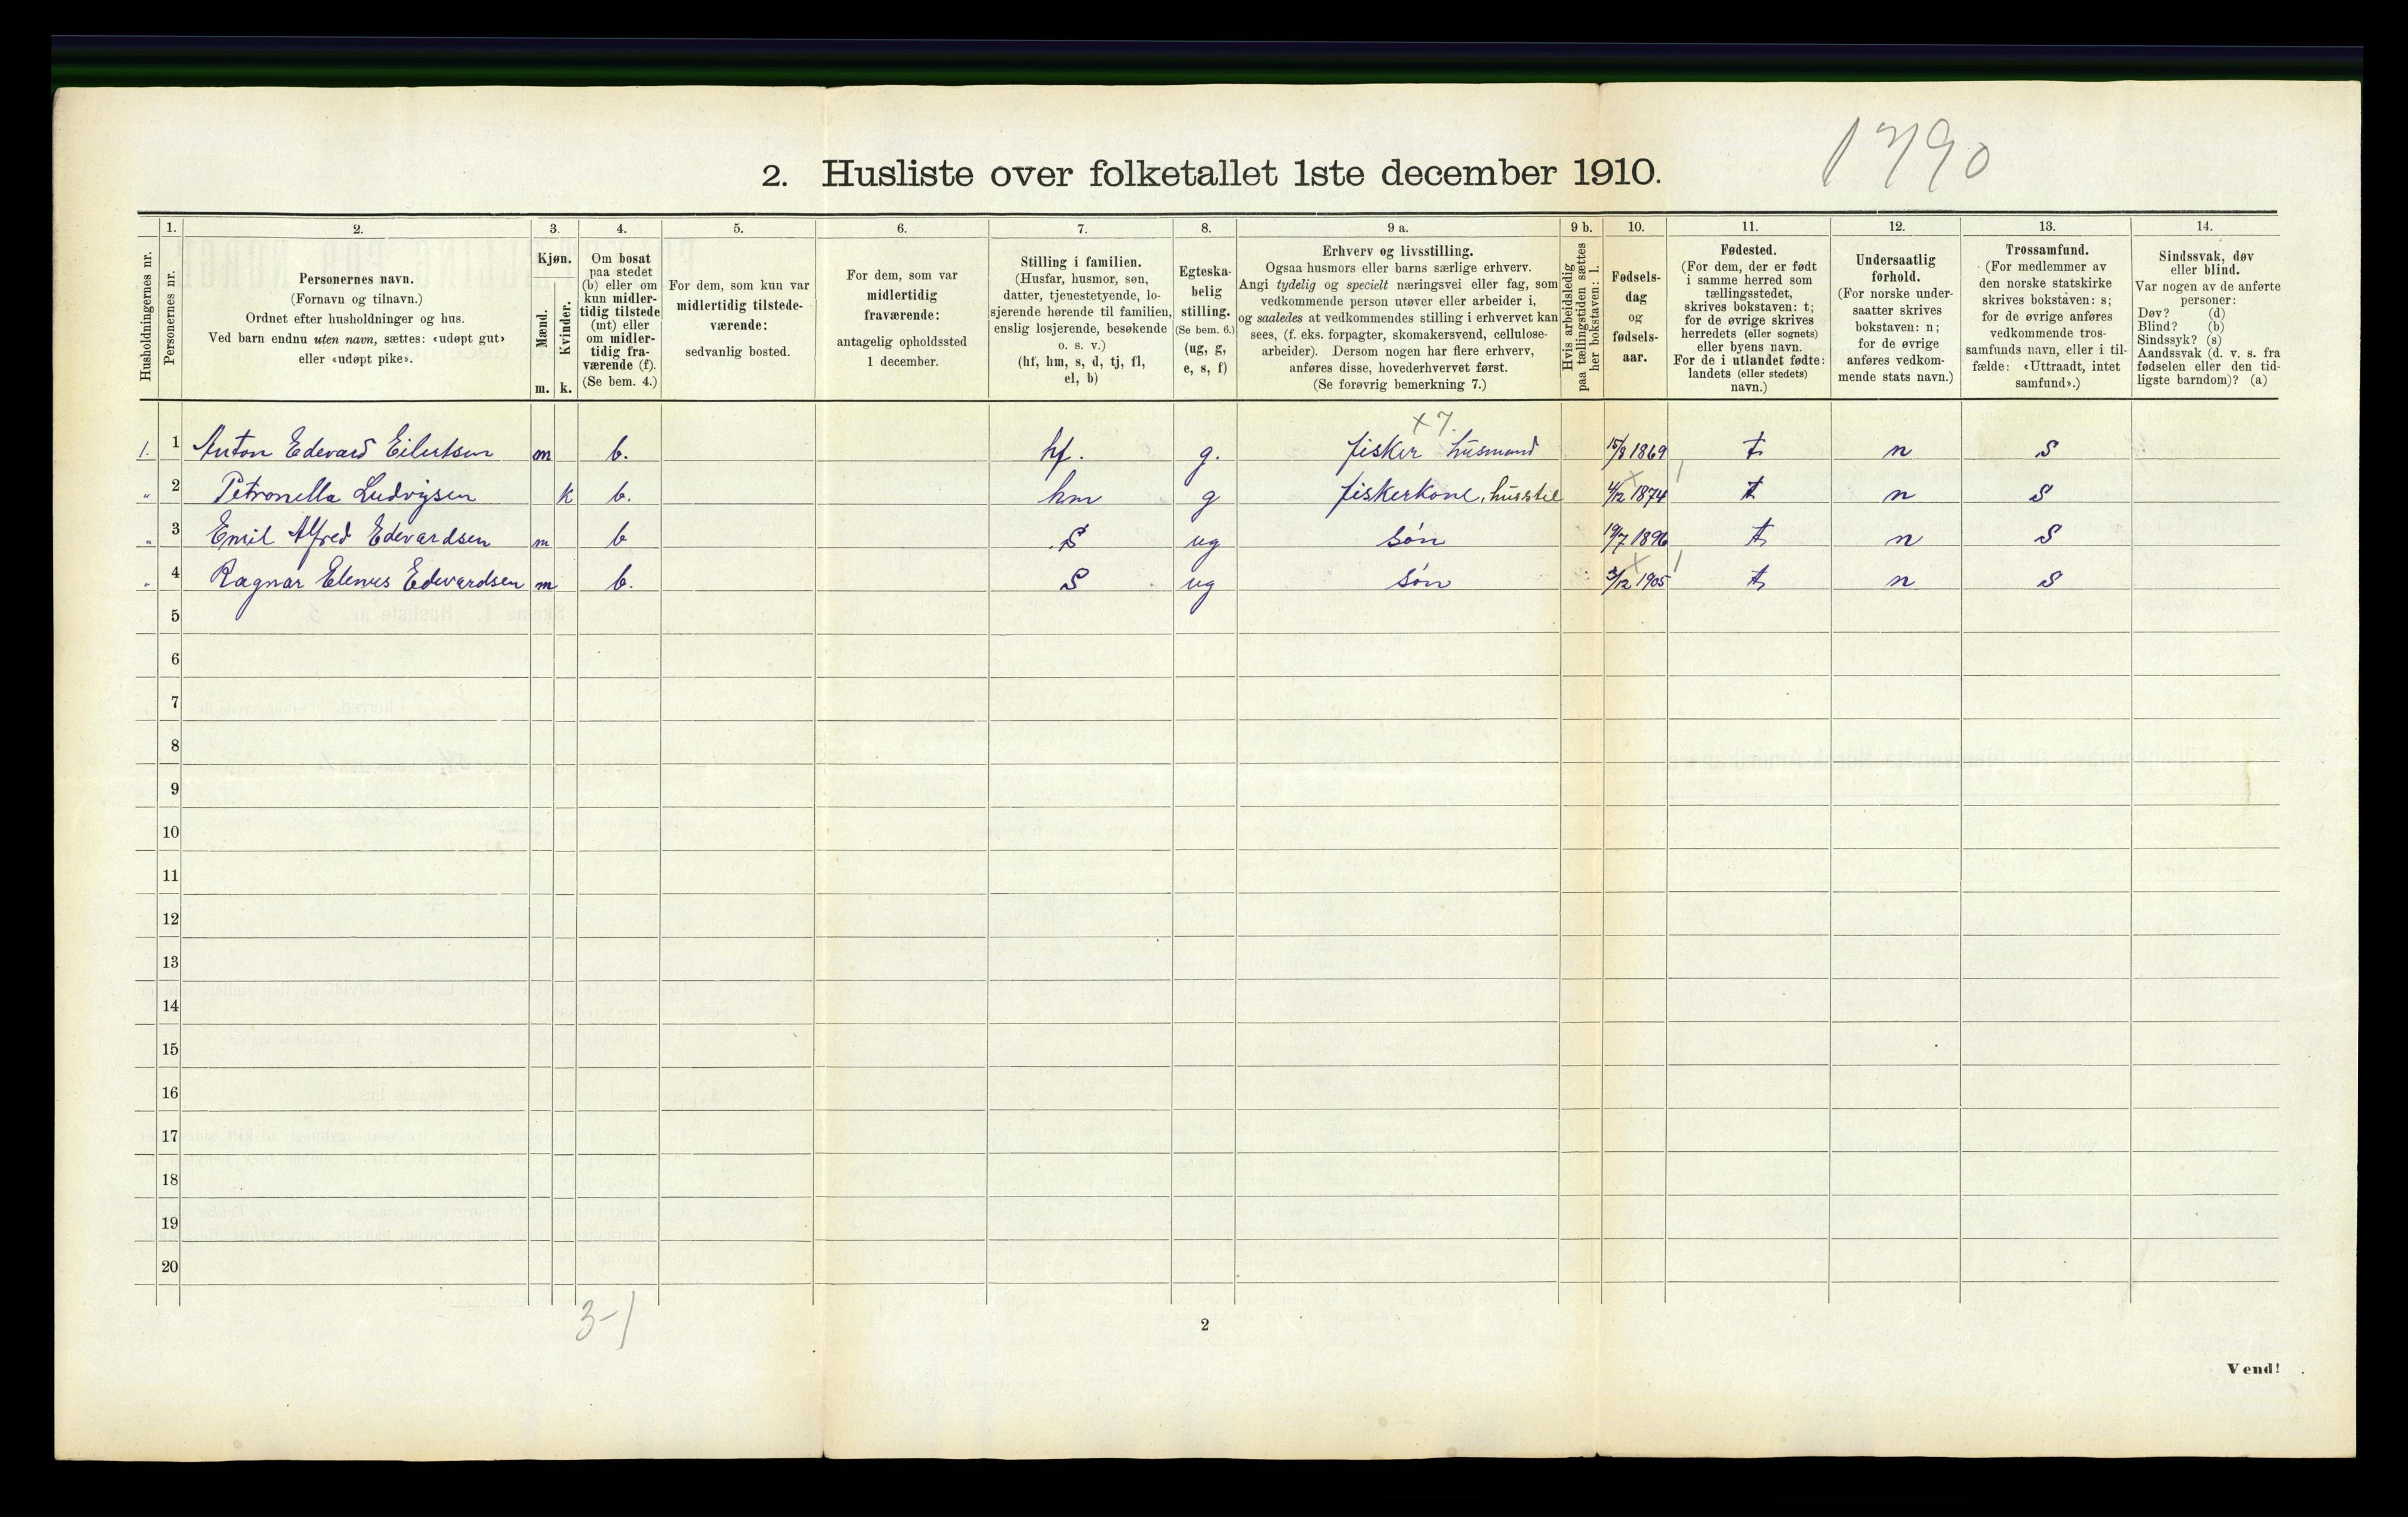 1790
2. Husliste over folketallet 1ste december 1910.
1. 2. 3. 4. 5. 6. 7. 8. 9 a. 9 b. 10. 11. 12. 13. 14.
Husholdningernes nr.
Personernes nr.
Personernes navn.
(Fornavn og tilnavn.)
Ordnet efter husholdninger og hus.
Ved barn endnu uten navn, sættes: «udøpt gut»
eller «udøpt pike».
Kjøn.
Mænd.
Kvinder.
m. k.
Om bosat
paa stedet
(b) eller om
kun midler-
tidig tilstede
(mt) eller
om midler-
tidig fra-
værende (f).
(Se bem. 4.)
For dem, som kun var
midlertidig tilstede-
værende:
sedvanlig bosted.
For dem, som var
midlertidig
fraværende:
antagelig opholdssted
1 december.
Stilling i familien.
(Husfar, husmor, søn,
datter, tjenestetyende, lo-
sjerende hørende til familien,
enslig losjerende, besøkende
o. s. v.)
(hf, hm, s, d, tj, fl,
el, b)
Egteska-
belig
stilling.
(Se bem. 6.)
(ug, g,
e, s, f)
Erhverv og livsstilling.
Ogsaa husmors eller barns særlige erhverv.
Angi tydelig og specielt næringsvei eller fag, som
vedkommende person utøver eller arbeider i,
og saaledes at vedkommendes stilling i erhvervet kan
sees, (f. eks. forpagter, skomakersvend, cellulose-
arbeider). Dersom nogen har flere erhverv,
anføres disse, hovederhvervet først.
(Se forøvrig bemerkning 7.)
Hvis arbeidsledig
paa tællingstiden sættes
her bokstaven: l.
Fødsels-
dag
og
fødsels-
aar.
Fødested.
(For dem, der er født
i samme herred som
tællingsstedet,
skrives bokstaven: t;
for de øvrige skrives
herredets (eller sognets)
eller byens navn.
For de i utlandet fødte:
landets (eller stedets)
navn.)
Undersaatlig
forhold.
(For norske under-
saatter skrives
bokstaven: n;
for de øvrige
anføres vedkom-
mende stats navn.)
Trossamfund.
(For medlemmer av
den norske statskirke
skrives bokstaven: s;
for de øvrige anføres
vedkommende tros-
samfunds navn, eller i til-
fælde: «Uttraadt, intet
samfund».)
Sindssvak, døv
eller blind.
Var nogen av de anførte
personer:
Døv? (d)
Blind? (b)
Sindssyk? (s)
Aandssvak (d. v. s. fra
fødselen eller den tid-
ligste barndom)? (a)
x 7.
1. 1 Anton Edevard Eilertsen m b. hf. g. fisker husmand 15/8 1869 t n s
" 2 Petronella Ludvigsen k b. hm g fiskerkone, husstel 4/12 1874 t n s
" 3 Emil Alfred Edevardsen m b s ug søn 19/7 1896 t n s
" 4 Ragnar Elenus Edevardsen m b. s ug søn 3/12 1905 t n s
5
6
7
8
9
10
11
12
13
14
15
16
17
18
19
20
3-1
2
Vend!